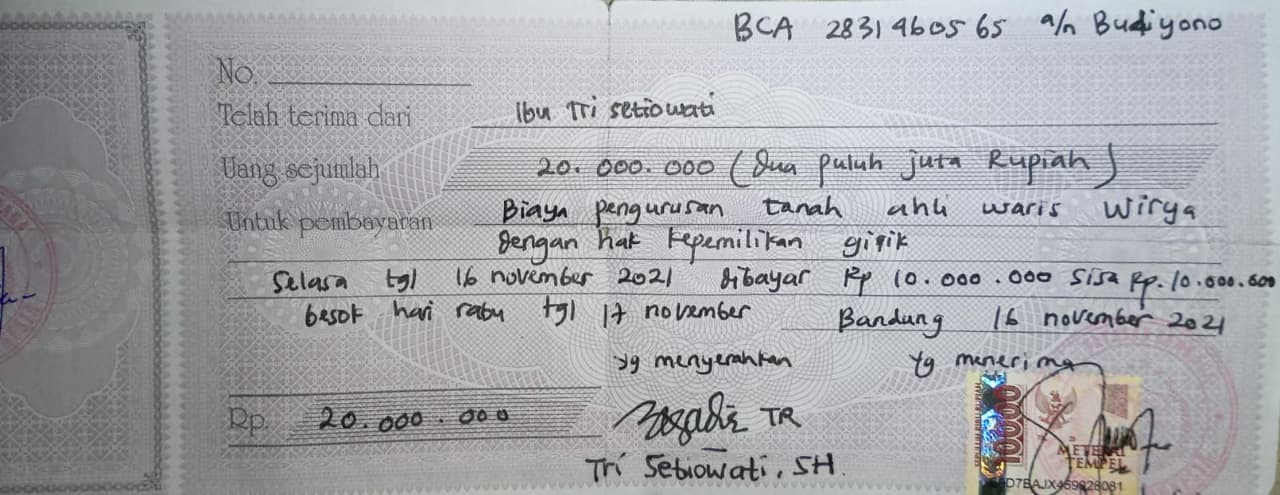 BCA 2831460565 a/n Budiyono
No.
Telah terima dari Ibu Tri Setiowati
Uang sejumlah 20.000.000 (Dua puluh juta Rupiah)
Untuk pembayaran Biaya pengurusan tanah ahli waris Wirya
dengan hak kepemilikan girik
Selasa tgl 16 november 2021 dibayar Rp 10.000.000 Sisa Rp.10.000.000
besok hari rabu tgl 17 november Bandung 16 november 2021
yg menyerahkan Yg menerima
Rp. 20.000.000 TR
10000
METERAI
TEMPEL
Tri Setiowati, SH.
D7BAJX459928081